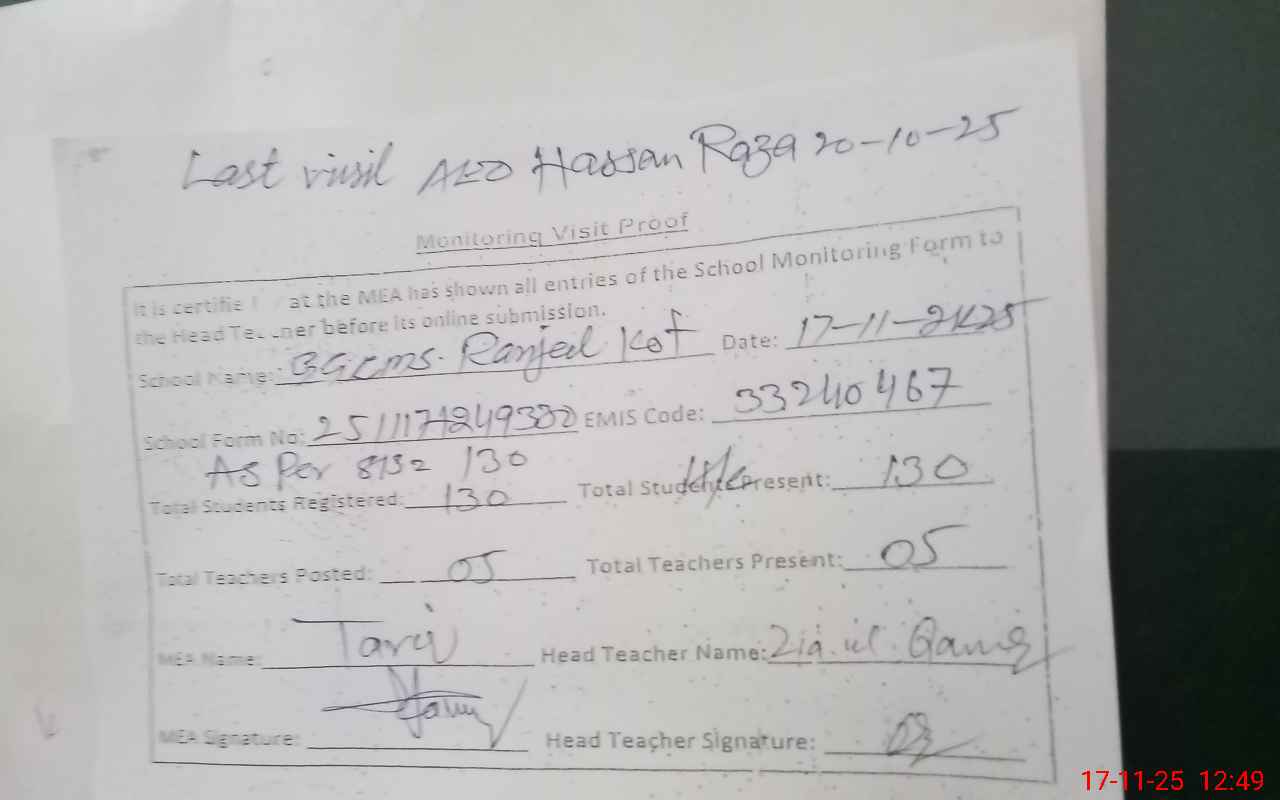 Last visil AEO Hassan Raza 20-10-25
Monitoring Visit Proof
It is certifie at the MEA has shown all entries of the School Monitoring Form to
the Head Te ner before its online submission.
School Name: Ranjed Kot Date: 17-11-2K25
School Form No: EMIS Code: 33240467
As Per 130
Total Students Registered: 130 Total Students Present: 130
Total Teachers Posted: 05 Total Teachers Present: 05
MEA Name: Head Teacher Name: Zia.ul.
MEA Signature: Head Teacher Signature:
17-11-25 12:49